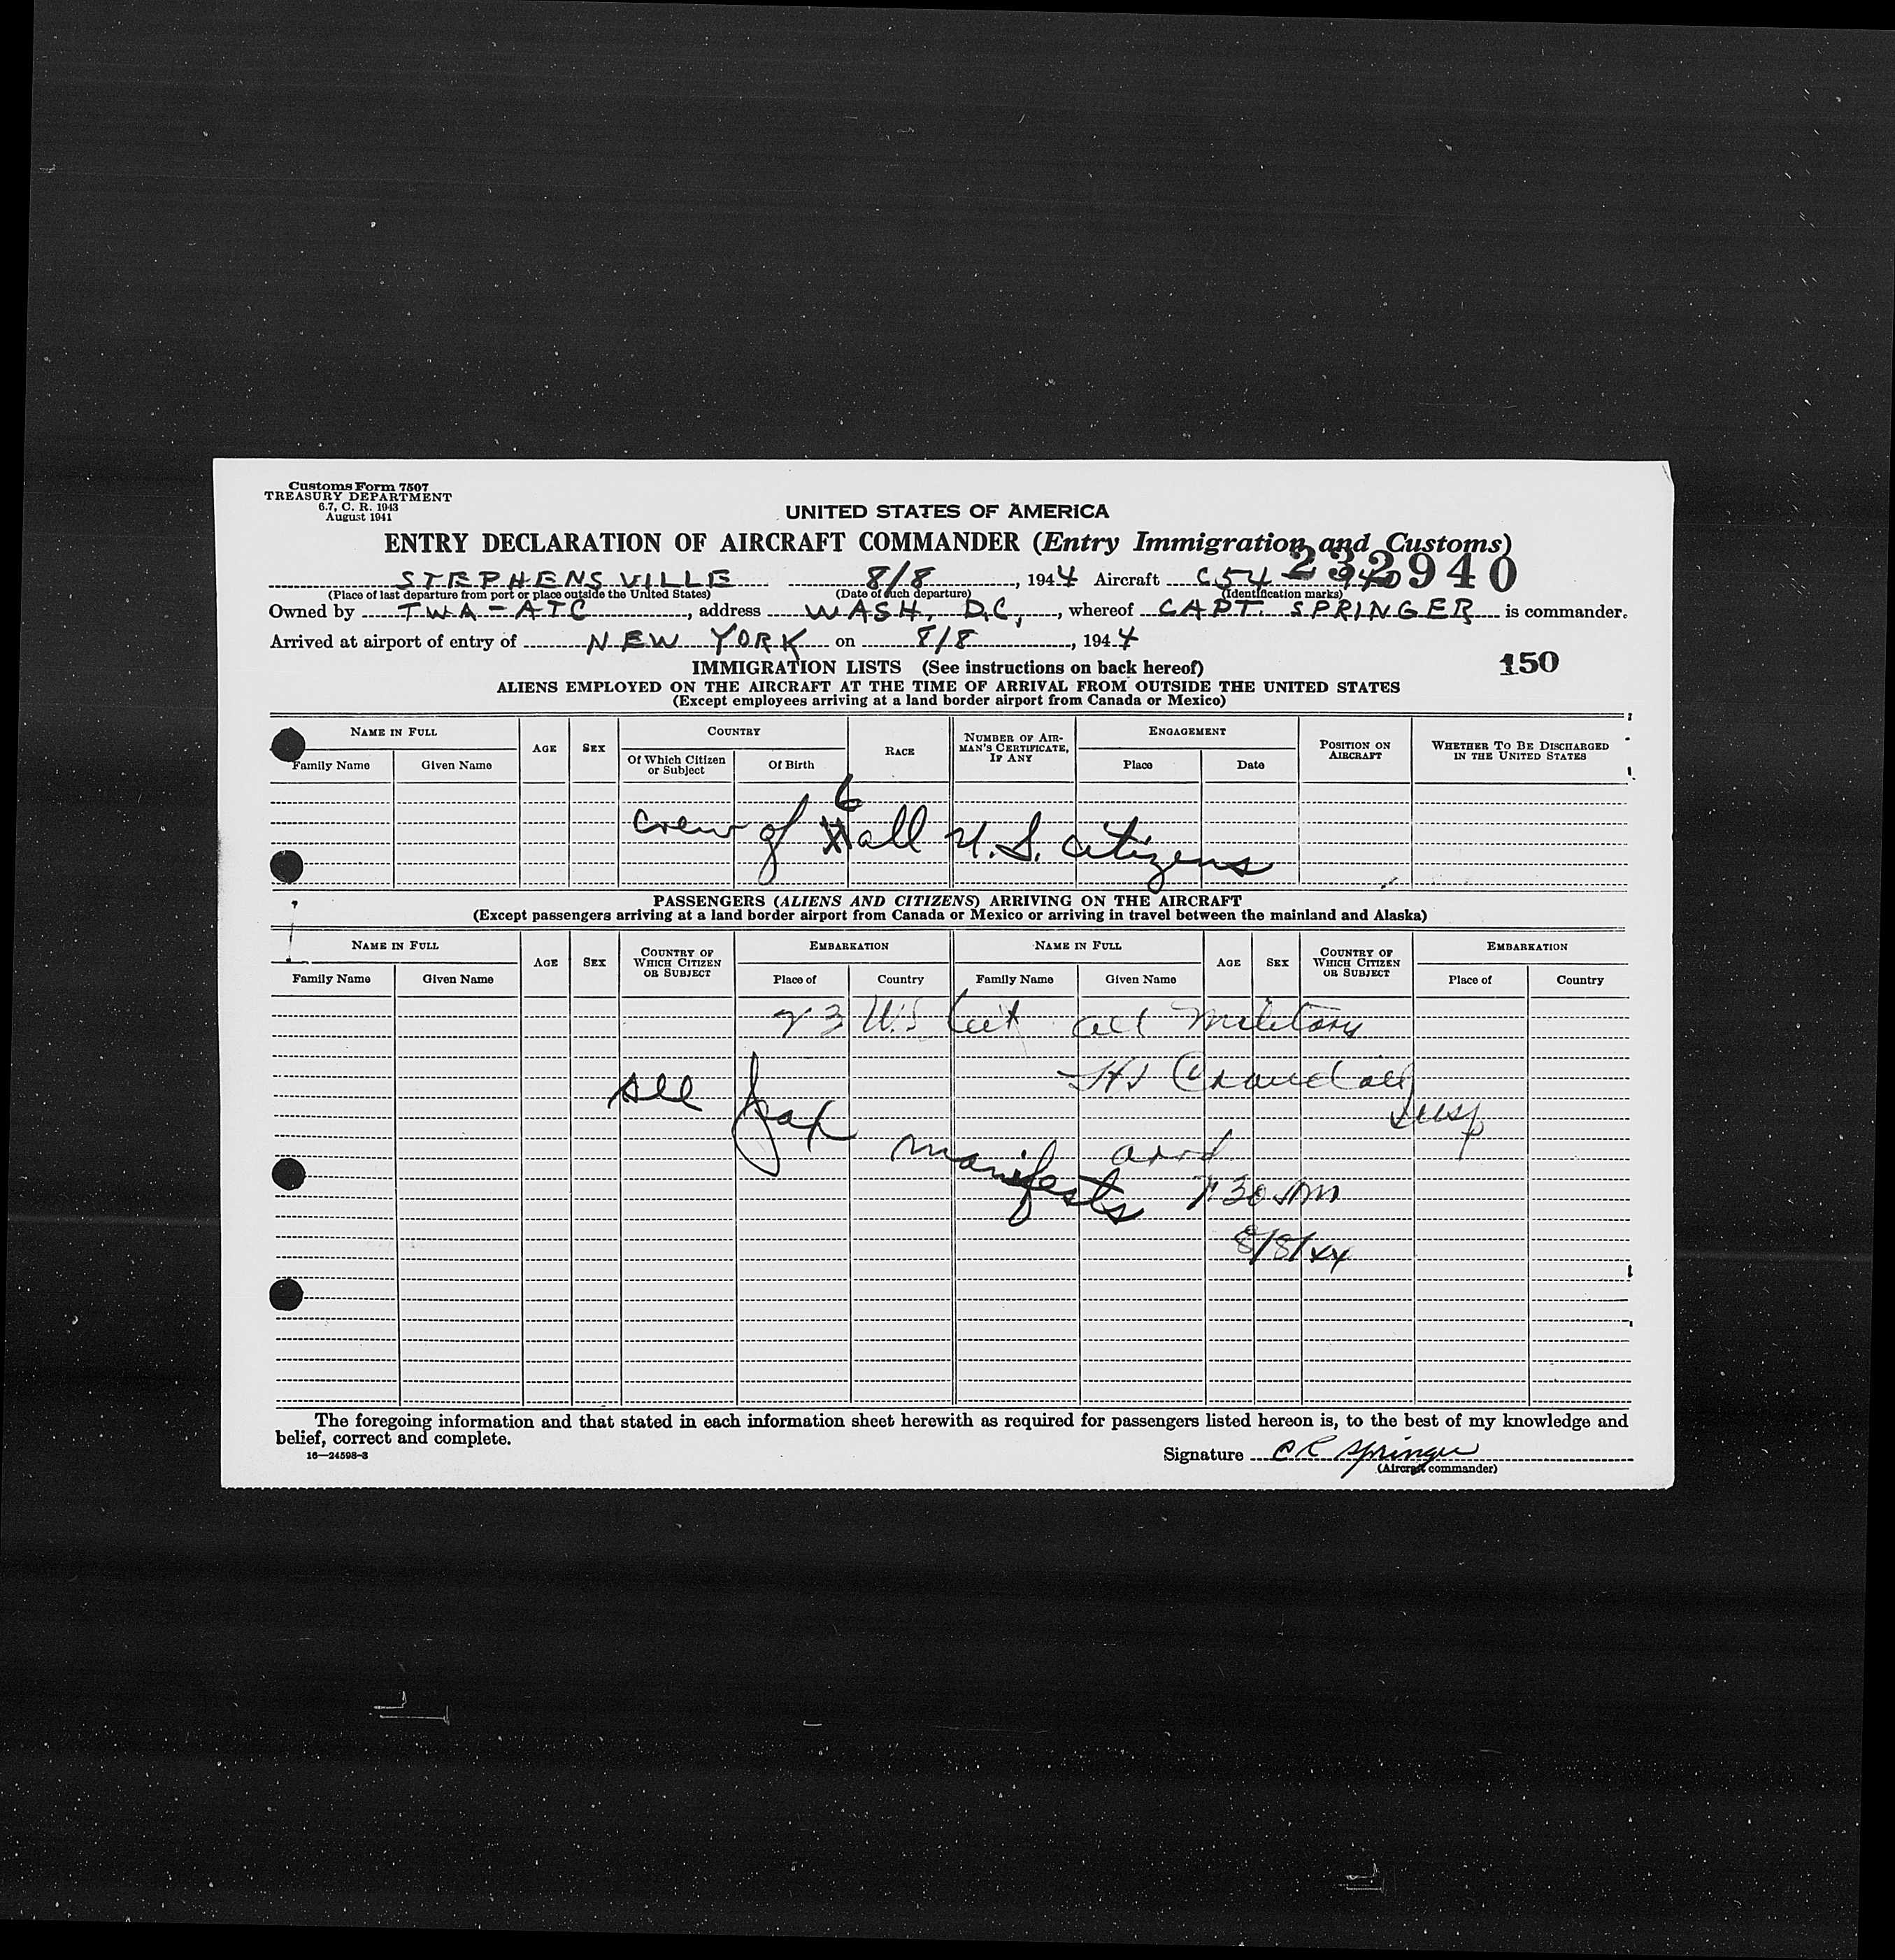 Customs Form 7507
TREASURY DEPARTMENT
6.7, C. R. 1943
August 1941
UNITED STATES OF AMERICA
ENTRY DECLARATION OF AIRCRAFT COMMANDER (Entry Immigration and Customs)
232940
STEPHENSVILLE 8/8, 1944 Aircraft C54 940
(Place of last departure from port or place outside the United States) (Date of such departure) (Identification marks)
Owned by TWA-ATC, address WASH, D.C., whereof CAPT. SPRINGER is commander.
Arrived at airport of entry of NEW YORK on 8/8, 1944
150
IMMIGRATION LISTS (See instructions on back hereof)
ALIENS EMPLOYED ON THE AIRCRAFT AT THE TIME OF ARRIVAL FROM OUTSIDE THE UNITED STATES
(Except employees arriving at a land border airport from Canada or Mexico)
NAME IN FULL AGE SEX COUNTRY RACE NUMBER OF AIRMAN'S CERTIFICATE, IF ANY ENGAGEMENT POSITION ON AIRCRAFT WHETHER TO BE DISCHARGED IN THE UNITED STATES
Family Name Given Name Of Which Citizen or Subject Of Birth Place Date
6
crew of all U.S. citizens
PASSENGERS (ALIENS AND CITIZENS) ARRIVING ON THE AIRCRAFT
(Except passengers arriving at a land border airport from Canada or Mexico or arriving in travel between the mainland and Alaska)
NAME IN FULL AGE SEX COUNTRY OF WHICH CITIZEN OR SUBJECT EMBARKATION NAME IN FULL AGE SEX COUNTRY OF WHICH CITIZEN OR SUBJECT EMBARKATION
Family Name Given Name Place of Country Family Name Given Name Place of Country
23 U.S cit all military
Crandall
Insp
see
manifests
arrd
7 30 AM
8/8/44
The foregoing information and that stated in each information sheet herewith as required for passengers listed hereon is, to the best of my knowledge and
belief, correct and complete.
16—24598-3
Signature C R Springer
(Aircraft commander)